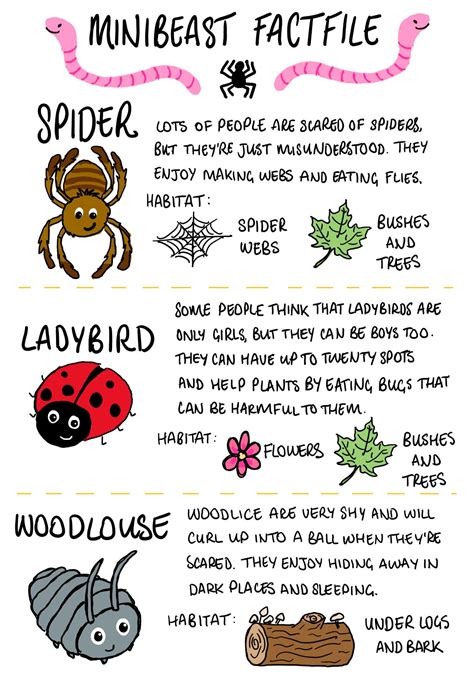 MINIBEAST FACTFILE
SPIDER
LOTS OF PEOPLE ARE SCARED OF SPIDERS,
BUT THEY'RE JUST MISUNDERSTOOD. THEY
ENJOY MAKING WEBS AND EATING FLIES.
HABITAT:
SPIDER
WEBS
BUSHES
AND
TREES
LADYBIRD
SOME PEOPLE THINK THAT LADYBIRDS ARE
ONLY GIRLS, BUT THEY CAN BE BOYS TOO.
THEY CAN HAVE UP TO TWENTY SPOTS
AND HELP PLANTS BY EATING BUGS THAT
CAN BE HARMFUL TO THEM.
HABITAT:
FLOWERS
BUSHES
AND
TREES
WOODLOUSE
WOODLICE ARE VERY SHY AND WILL
CURL UP INTO A BALL WHEN THEY'RE
SCARED. THEY ENJOY HIDING AWAY IN
DARK PLACES AND SLEEPING.
HABITAT:
UNDER LOGS
AND BARK